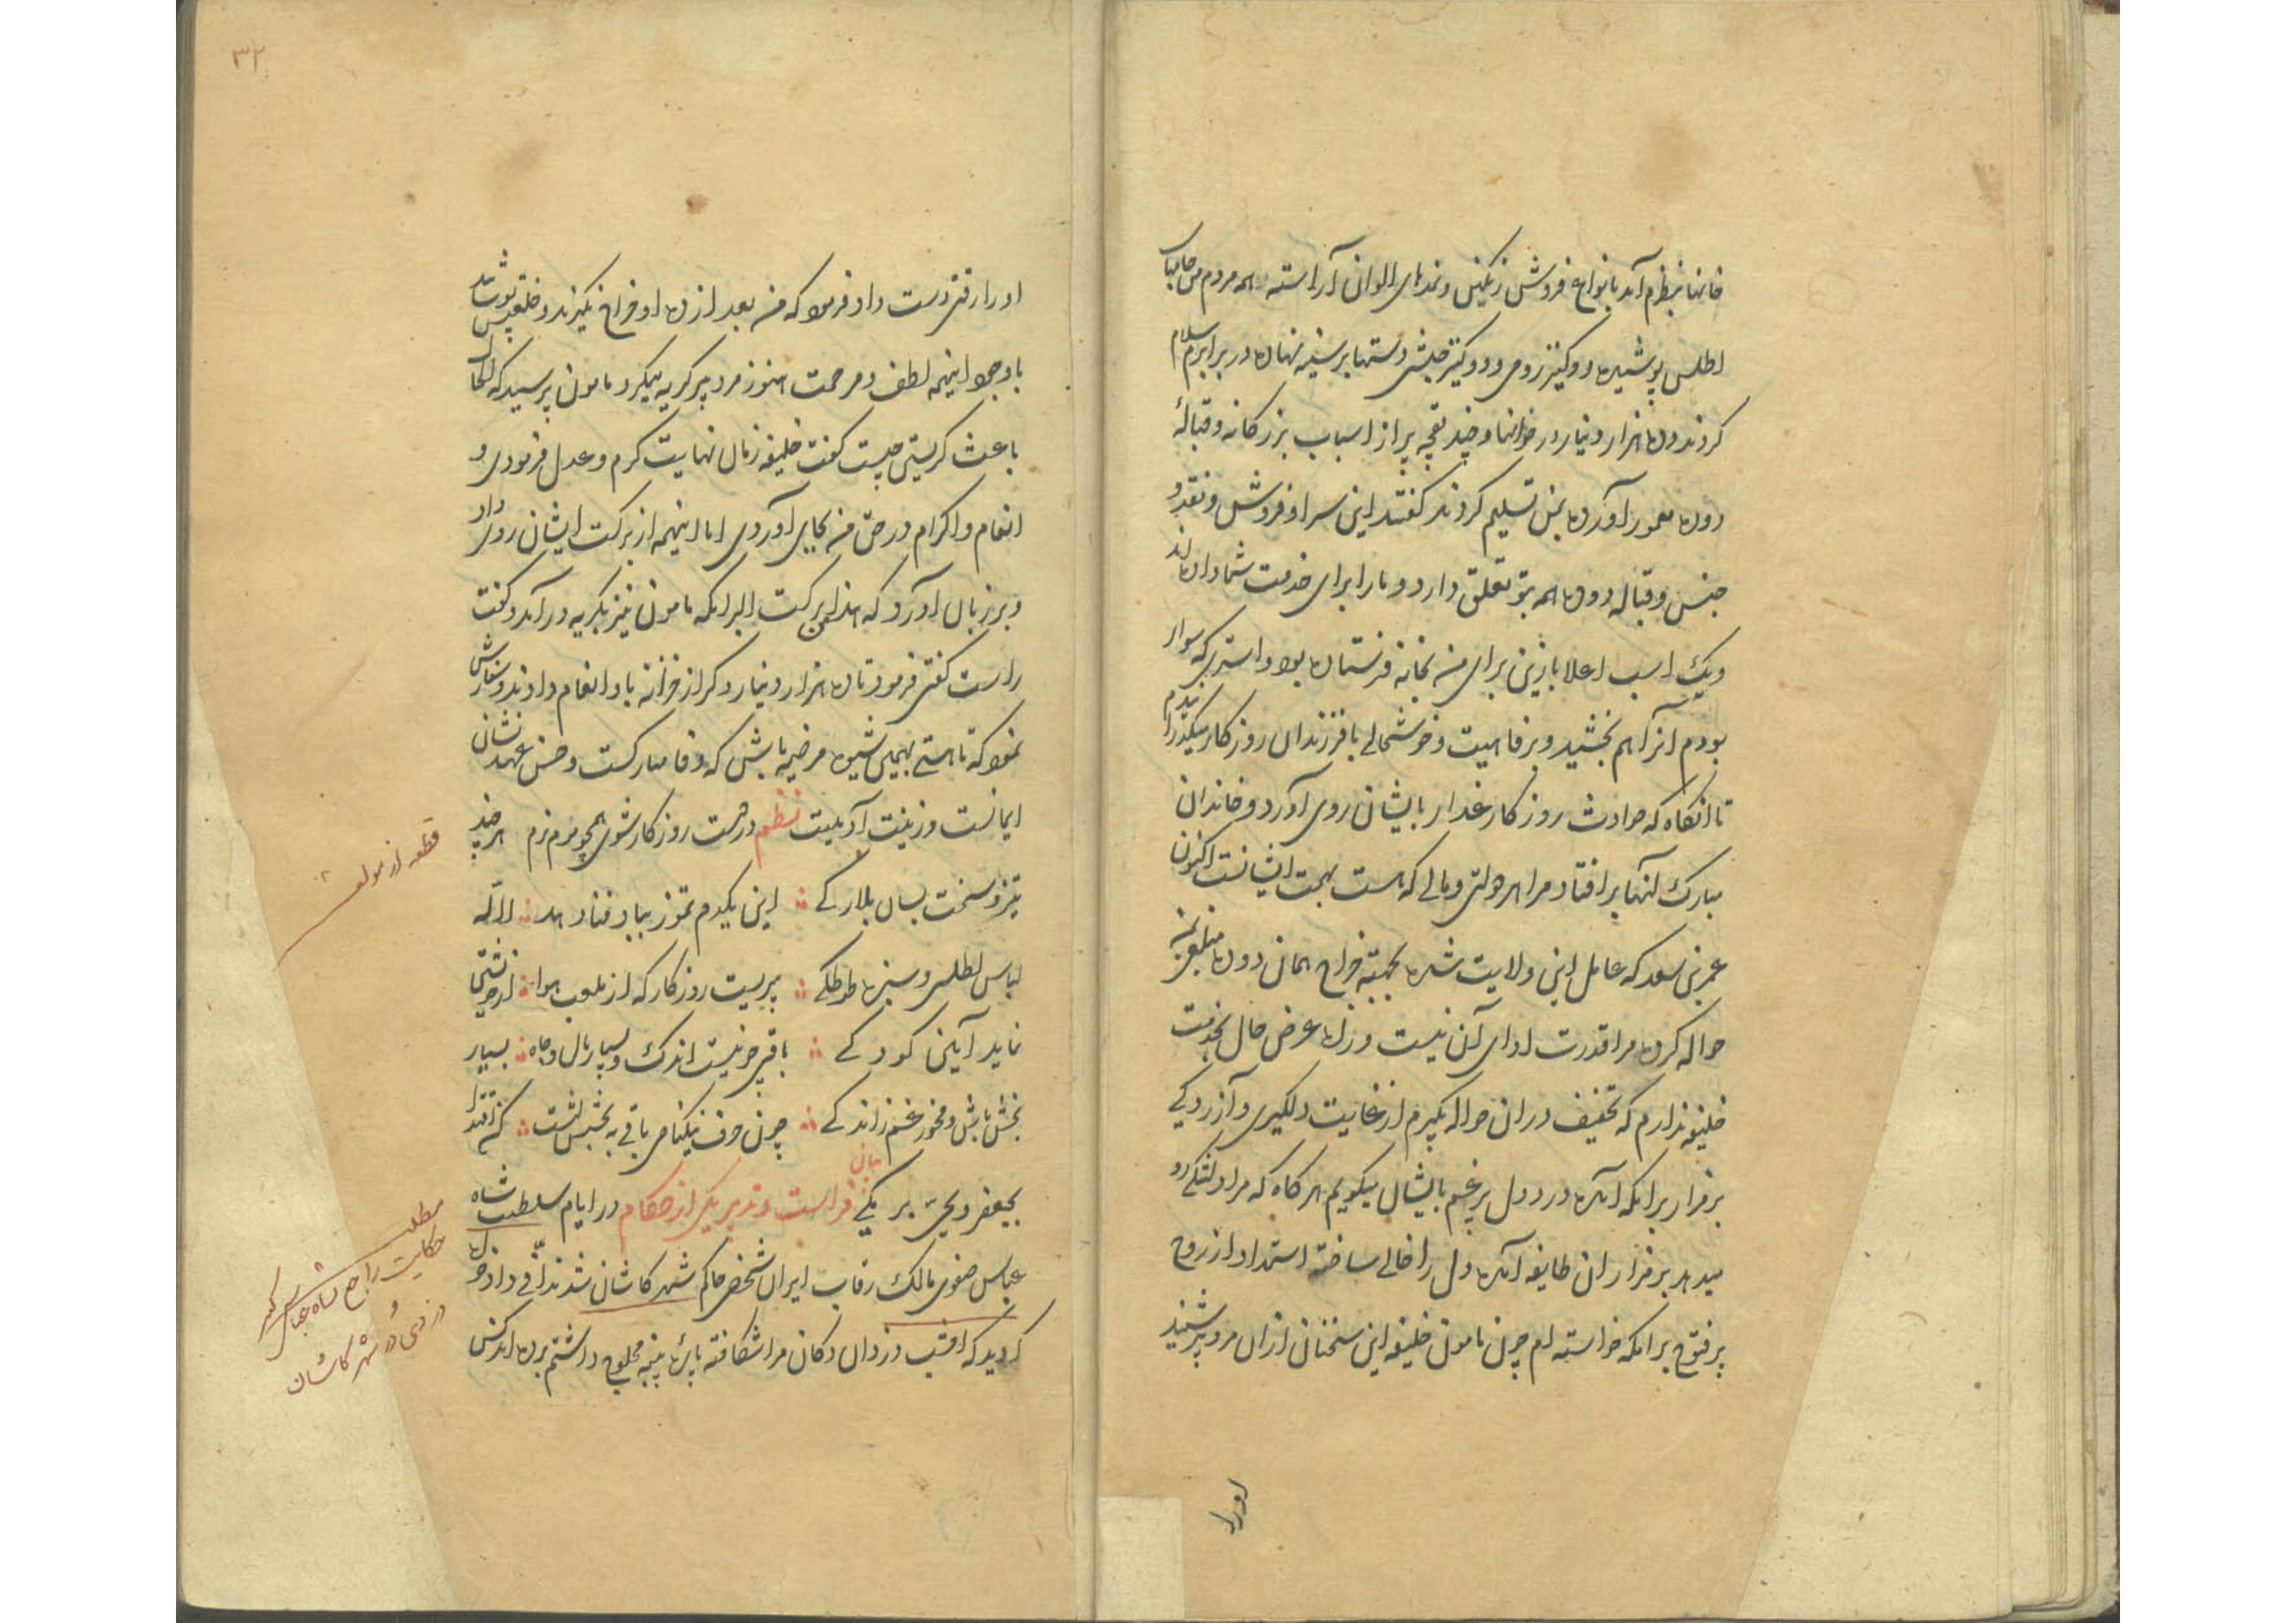 خانها بنظرم آمد بانواع فروش رنگین و نمدهای الوان آراسته همه مردم من جامهای
اطلس پوشیده و دو کنیز رومی و دو کنیز حبشی دستها بر سینه نهاده در برابرم سلام
کردند ده هزار دینار در خوانها و چند بقچه پر از اسباب بزرگانه و قبالهٔ
دو ده معمور آورده بمن تسلیم کردند گفتند این سرا و فروش و نقد و
جنس و قباله دو ده همه بتو تعلق دارد و ما را برای خدمت شما داده اند
و یک اسب اعلا با زین برای من بخانه فرستاده بود و استری که سوار
بودم آنرا هم بخشید و برفاهیت و خوشحالی با فرزندان روزکار میگذرانیدم
تا انکاه که حوادث روزکار غدار بایشان روی آورد و خاندان
مبارک آنها برافتاد مرا هر دولتی و مالی که هست بهمت ایشانست اکنون
عمر بن سعد که عامل این ولایت شده بجهته خراج همان دو ده مبلغی بمن
حواله کرده مرا قدرت ادای آن نیست و زهره عرض حال بخدمت
خلیفه ندارم که تخفیف در ان حواله بگیرم از غایت دلگیری و آزردکی
بر مزار برامکه آمده درد دل پر غم بایشان میکویم هر کاه که مرا دلتنگی رو
میدهد بر مزار ان طایفه آمده دل را خالی ساخته استمداد از روح
پر فتوح برامکه خواسته ام چون مامون خلیفه این سخنان از ان مرد پیر شنید
اورا
۳۲
اورا رقتی دست داد فرمود که من بعد از ده او خراج نگیرند و خلعتی پوشانید پس
با وجود اینهمه لطف و مرحمت هنوز مرد پیر کریه میکرد مامون پرسید که الحال
باعث کریستن چیست کفت خلیفه زمان نهایت کرم و عدل فرمودی و
انعام و اکرام در حق من بجای آوردی اما اینهمه از برکت ایشان روی داد
و بر زبان آورد که هذا من برکت البرامکه مامون نیز بکریه در آمد و کفت
راست کفتی فرمود تا ده هزار دینار دکر از خزانه باو انعام دادند و سفارش
نمود که تا هستی بهمین شیوه مرضیه باش که وفا مبارکست و حسن عهد نشان
ایمانست و زینت آدمیت نظم در مشت روزکار شوی همچو موم نرم هر چند
تیز و سخت بسان بلارکی این یکدم تموز بباد فنا دهد لاله
لباس اطلس و سبزه طوطکی پیریست روزکار که از بلعب هوا از خوی زشتی
نماید آیین کودکی باقی چو نیست اندک و بسیار مال و جاه بسیار
بخش باش و مخور غم ز اندکی چون حرف نیکنامی باقی به بخششست کن اقتدا
بجعفر و یحیی برمکی بیان فراست و تدبیر یکی از حکام در ایام سلطنت شاه
عباس صفوی مالک رقاب ایران شخصی حاکم شهر کاشان شد ندافی دادخواه
کردید که امشب دزدان دکان مرا شکافته پاره پنبه محلوج داشتم برده اند کس
قطعه از مولف
مطلب
حکایت راجع بشاه عباس کبیر
دزدی در شهر کاشان